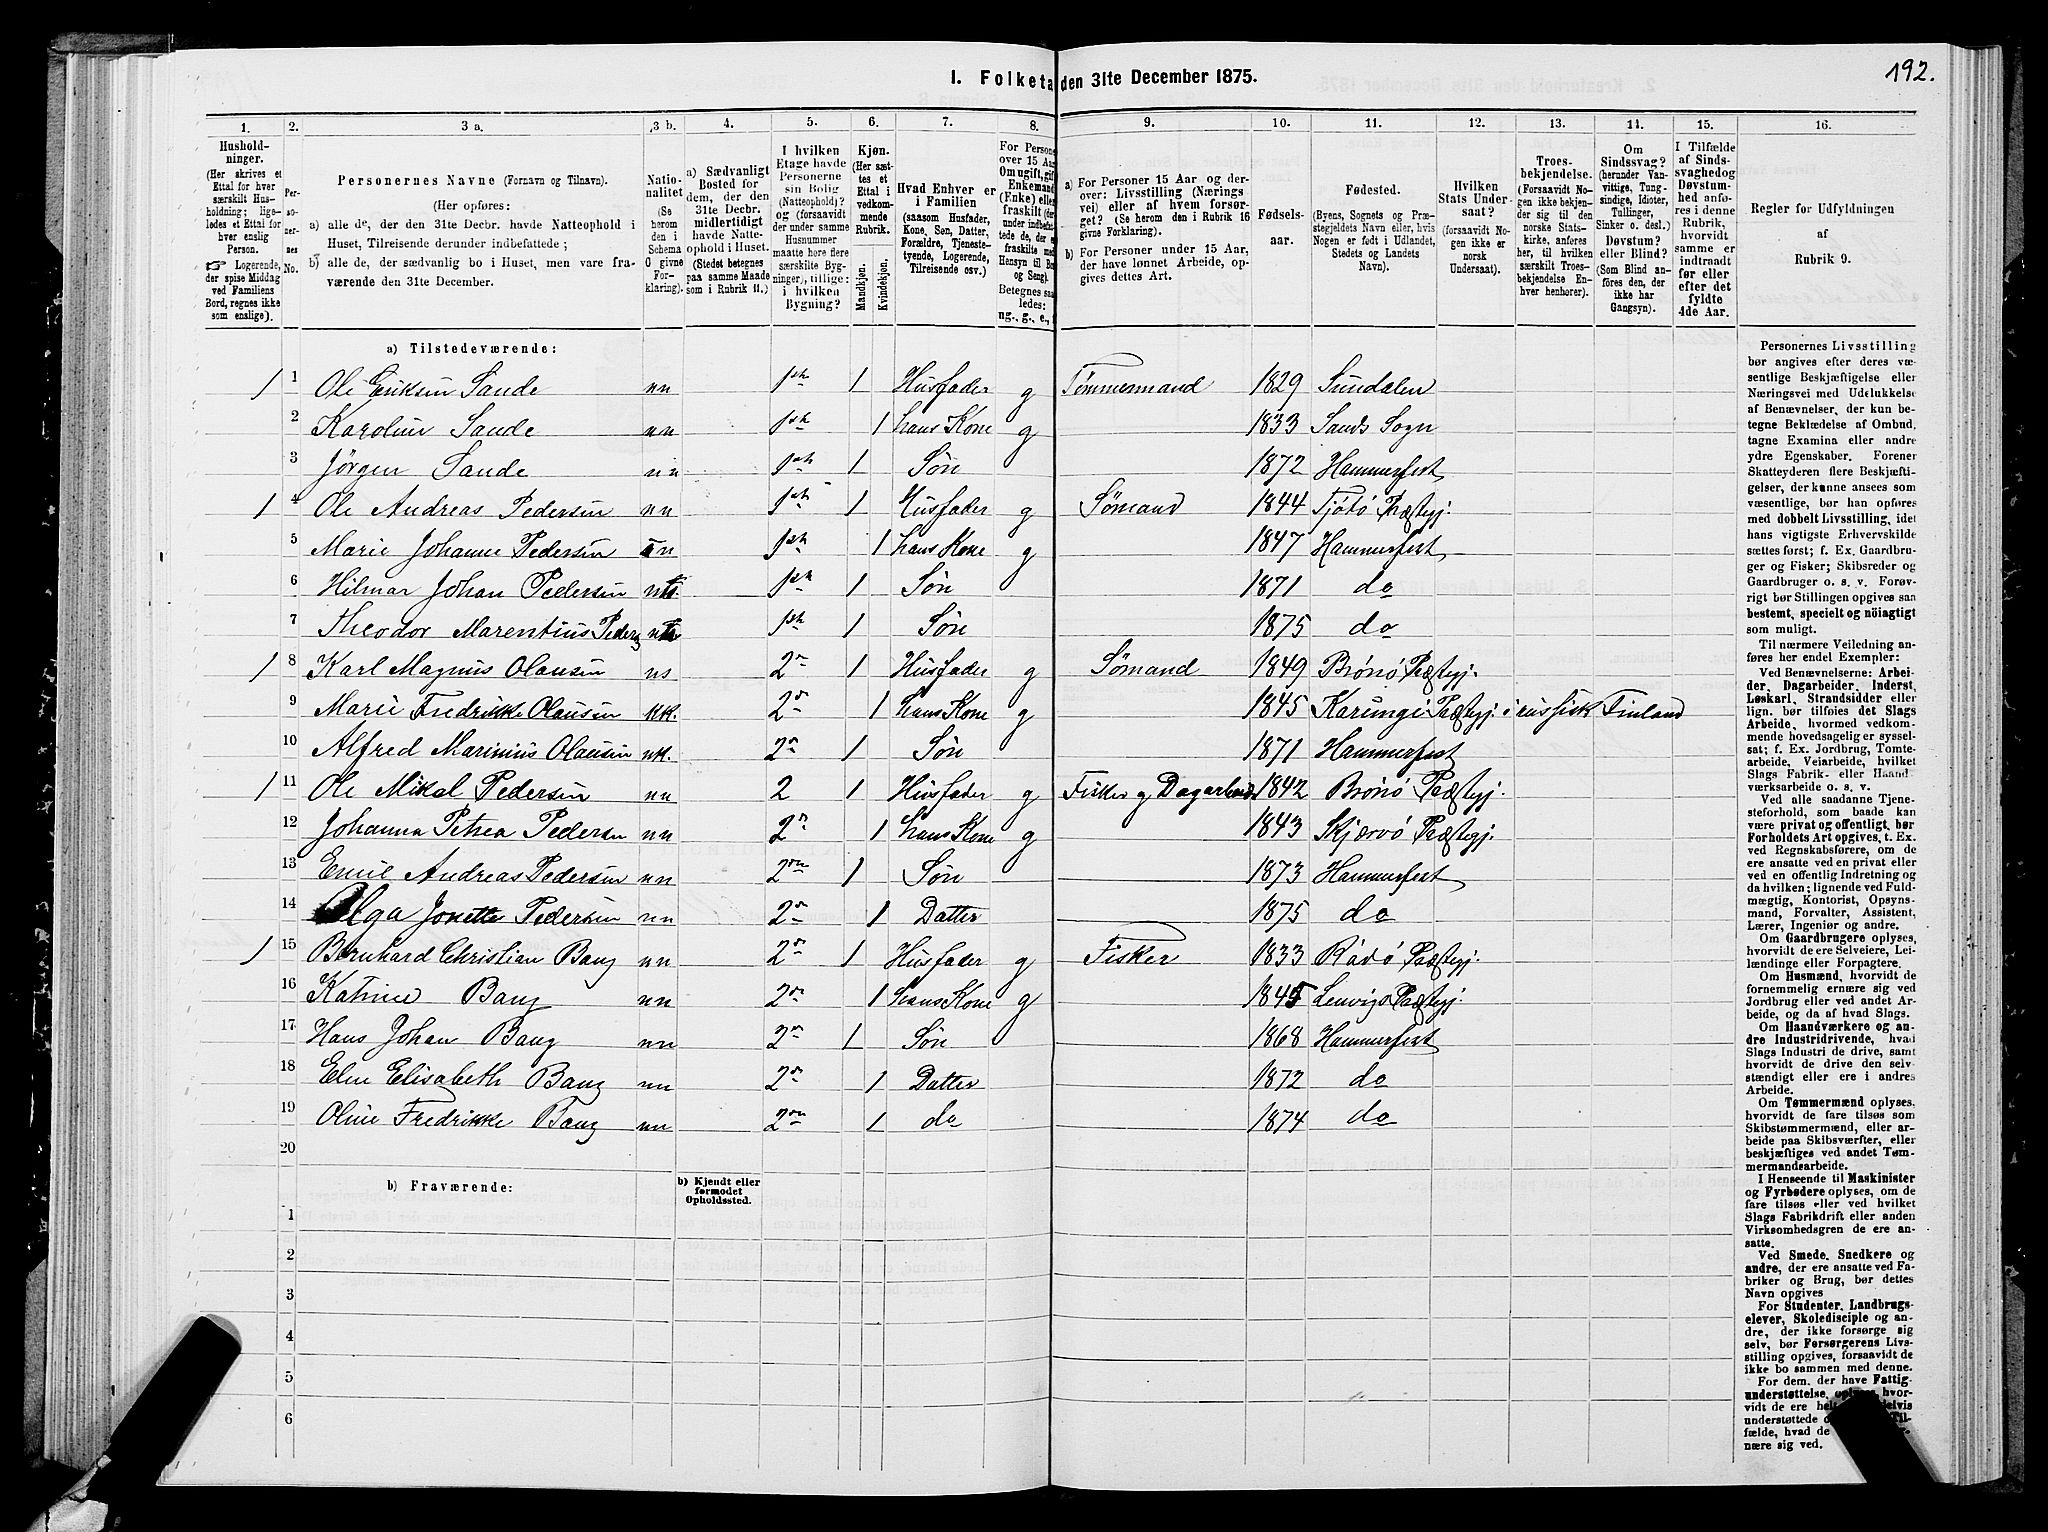 192.
I. Folketa den 31te December 1875.
1. 2. 3 a. 3 b. 4. 5. 6. 7. 8. 9. 10. 11. 12. 13. 14. 15. 16.
Husholdninger.
(Her skrives et
Ettal for hver
særskilt Husholdning; ligeledes
et Ettal for
hver enslig
Person.
☞ Logerende,
der spise Middag
ved Familiens
Bord, regnes ikke
som enslige).
Personernes No.
Personernes Navne (Fornavn og Tilnavn).
(Her opføres:
a) alle de, der den 31te Decbr. havde Natteophold i
Huset, Tilreisende derunder indbefattede;
b) alle de, der sædvanlig bo i Huset, men vare fraværende
den 31te December.
Nationalitet
(Se
herom
den i
Schema
O givne
Forklaring).
a) Sædvanligt
Bosted for
dem, der den
31te Decbr.
midlertidigt
havde Natteophold
i Huset.
(Stedet betegnes
paa samme Maade
som i Rubrik 11.)
I hvilken
Etage havde
Personerne
sin Bolig
(Natteophold)?
og (forsaavidt
der under samme
Husnummer
maatte høre flere
særskilte Bygninger),
tillige:
i hvilken
Bygning?
Kjøn.
(Her sættes
et
Ettal i
vedkommende
Rubrik.
Mandkjøn.
Kvindekjøn.
Hvad Enhver er
i Familien
(saasom Husfader,
Kone, Søn, Datter,
Forældre, Tjenestetyende,
Logerende,
Tilreisende osv.)
For Persone
over 15 Aar
Om ugift, gif
Enkemand
(Enke) elle
fraskilt
Betegnes saa
ledes:
ug., g., e.,
a) For Personer 15 Aar og derover:
Livsstilling (Næringsvei)
eller af hvem forsørget?
(Se herom den i Rubrik 16
givne Forklaring).
b) For Personer under 15 Aar,
der have lønnet Arbeide, opgives
dettes Art.
Fødselsaar.
Fødested.
(Byens, Sognets og Præstegjeldets
Navn eller, hvis
Nogen er født i Udlandet,
Stedets og Landets
Navn).
Hvilken
Stats Undersaat?
(forsaavidt Nogen
ikke er
norsk
Undersaat).
Troesbekjendelse.
(Forsaavidt Nogen
ikke bekjender
sig til den
norske Statskirke,
anføres
her, til hvilken
særskilt Troesbekjendelse
Enhver
henhører).
Om
Sindssvag?
(herunder Vanvittige,
Tungsindige,
Idioter,
Tullinger,
Sinker o. desl.)
Døvstum?
eller Blind?
(Som Blind anføres
den, der
ikke har
Gangsyn).
I Tilfælde
af Sindssvaghed
og
Døvstumhed
anføres
i denne
Rubrik,
hvorvidt
samme er
indtraadt
før eller
efter det
fyldte
4de Aar.
Regler for Udfyldningen
af
Rubrik 9.
a) Tilstedeværende:
1 1 Ole Eriksen Sande nn 1ste 1 Husfader g Tømmermand 1829 Sundalen
2 Karoline Sande nn 1ste 1 hans Kone g 1833 Sands Sogn
3 Jørgen Sande nn 1ste 1 Søn 1872 Hammerfest
1 4 Ole Andreas Pedersen nn 1ste 1 Husfader g Sømand 1844 Tjøtø Præstegj.
5 Marie Johanne Pedersen n 1ste 1 hans Kone g 1847 Hammerfest
6 Hilmar Johan Pedersen 1ste 1 Søn 1871 do
7 Theodor Marentius Peders 1ste 1 Søn 1875 do
1 8 Karl Magnus Olausen ns 2den 1 Husfader g Sømand 1849 Brønø Præstegj.
9 Marie Fredrikke Olausen kk. 2den 1 hans Kone g 1845 Karungi Præstegj. i russisk Finland
10 Alfred Marinius Olausen nk. 2den 1 Søn 1871 Hammerfest
1 11 Ole Mikal Pedersen nn 2 1 Husfader g Fisker og Dagarbeider 1842 Brønø Præstegj.
12 Johanna Petrea Pedersen nn 2den 1 hans Kone g 1843 Skjærvø Præstegj.
13 Emil Andreas Pedersen nn 2den 1 Søn 1873 Hammerfest
14 Olga Jonette Pedersen nn 2den 1 Datter 1875 do
1 15 Bernhard Christian Bang nn 2den 1 Husfader g Fisker 1833 Rødø Præstegj.
16 Katrine Bang nn 2den 1 hans Kone g 1845 Lenvigs Præstegj.
17 Hans Johan Bang nn 2den 1 Søn 1868 Hammerfest
18 Elen Elisabeth Bang nn 2den 1 Datter 1872 do
19 Oline Fredrikke Bang nn 2den 1 do 1874 do
20
b) Fraværende:
b) Kjendt eller
formodet
Opholdssted.
1
2
3
4
5
6
Personernes Livsstilling
bør angives efter deres væsentlige
Beskjæftigelse eller
Næringsvei med Udelukkelse
af Benævnelser, der kun betegne
Beklædelse af Ombud,
tagne Examina eller andre
ydre Egenskaber. Forener
Skatteyderen flere Beskjæftigelser,
der kunne ansees som
væsentlige, bør han opføres
med dobbelt Livsstilling, idet
hans vigtigste Erhvervskilde
sættes først; f. Ex. Gaardbruger
og Fisker; Skibsreder og
Gaardbruger o. s. v. Forøvrigt
bør Stillingen opgives saa
bestemt, specielt og nöiagtigt
som muligt.
Til nærmere Veiledning anføres
her endel Exempler:
Ved Benævnelserne: Arbeider,
Dagarbeider, Inderst,
Løskarl, Strandsidder eller
lign. bør tilføies det Slags
Arbeide, hvormed vedkommende
hovedsagelig er sysselsat;
f. Ex. Jordbrug, Tomtearbeide,
Veiarbeide, hvilket
Slags Fabrik- eller Haandværksarbeide
o. s. v.
Ved alle saadanne Tjenesteforhold,
som baade kan
være privat og offentligt, bør
Forholdets Art opgives, t. Ex.
ved Regnskabsførere, om de
ere ansatte ved en privat eller
ved en offentlig Indretning og
da hvilken; lignende ved Fuldmægtig,
Kontorist, Opsynsmand,
Forvalter, Assistent,
Lærer, Ingeniør og andre.
Om Gaardbrugere oplyses,
hvorvidt de ere Selveiere, Leilændinge
eller Forpagtere.
Om Husmænd, hvorvidt de
fornemmelig ernære sig ved
Jordbrug eller ved andet Arbeide,
og da af hvad Slags.
Om Haandværkere og andre
Industridrivende, hvad
Slags Industri de drive, samt
hvorvidt de drive den selvstændigt
eller ere i andres
Arbeide.
Om Tømmermænd oplyses,
hvorvidt de fare tilsøs som
Skibstømmermænd, eller arbeide
paa Skibsværfter, eller
beskjæftiges ved andet Tømmermandsarbeide.
I Henseende til Maskinister
og Fyrbødere oplyses, om de
fare tilsøs eller ved hvilket
Slags Fabrikdrift eller anden
Virksomhedsgren de ere ansatte.
Ved Smede, Snedkere og
andre, der ere ansatte ved Fabriker
og Brug, bør dettes
Navn opgives
For Studenter, Landbrugselever,
Skoledisciple og andre,
der ikke forsørge sig
selv, bør Forsørgerens Livsstilling
opgives, forsaavidt de
ikke bo sammen med denne.
For dem, der have Fattigunderstøttelse,
oplyses, hvorvidt
de ere hel delvis
understøttede Tilfælde,
hvad de
nære sig ved.